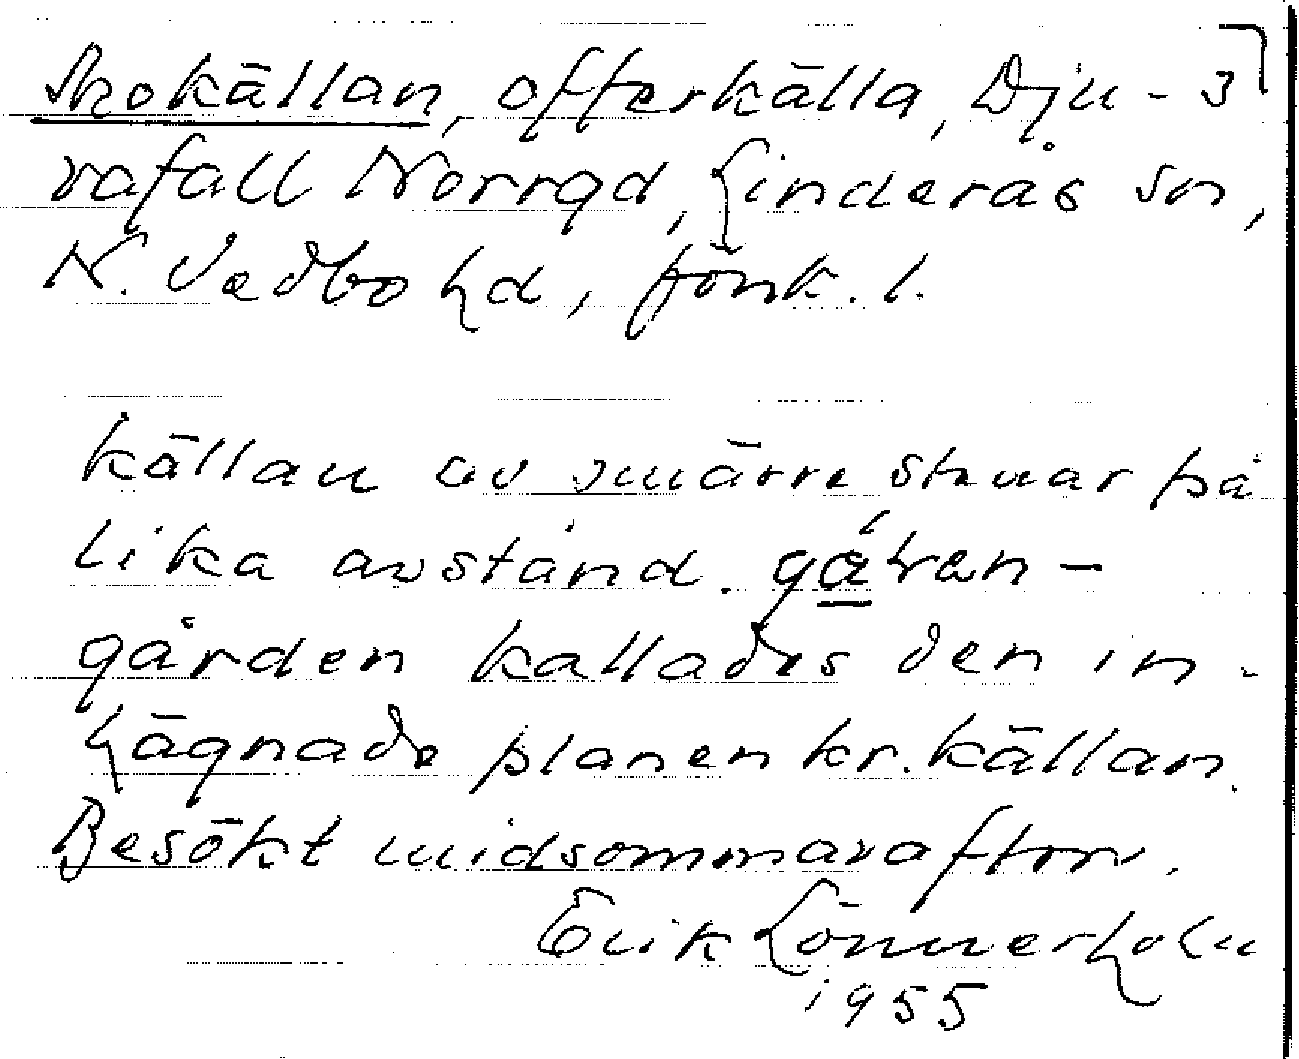 Skokällan, offerkälla, Dju- 3
vafall Norrgd, Linderås sn,
N. Vedbo hd, Jönk. l.
källan av smärre stenar på
lika avstånd.
gården kallades den in-
hägnade planen kr. källan.
Besökt midsommarafton.
Erik Lönnerholm
1955